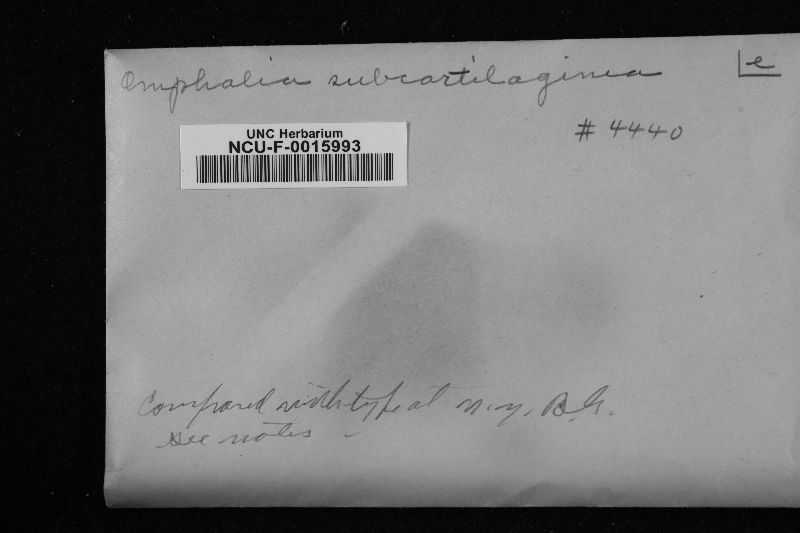 Omphalia subcartilaginea
e
# 4440
UNC Herbarium
NCU-F-0015993
Compared with type at N.Y. B.G.
see notes